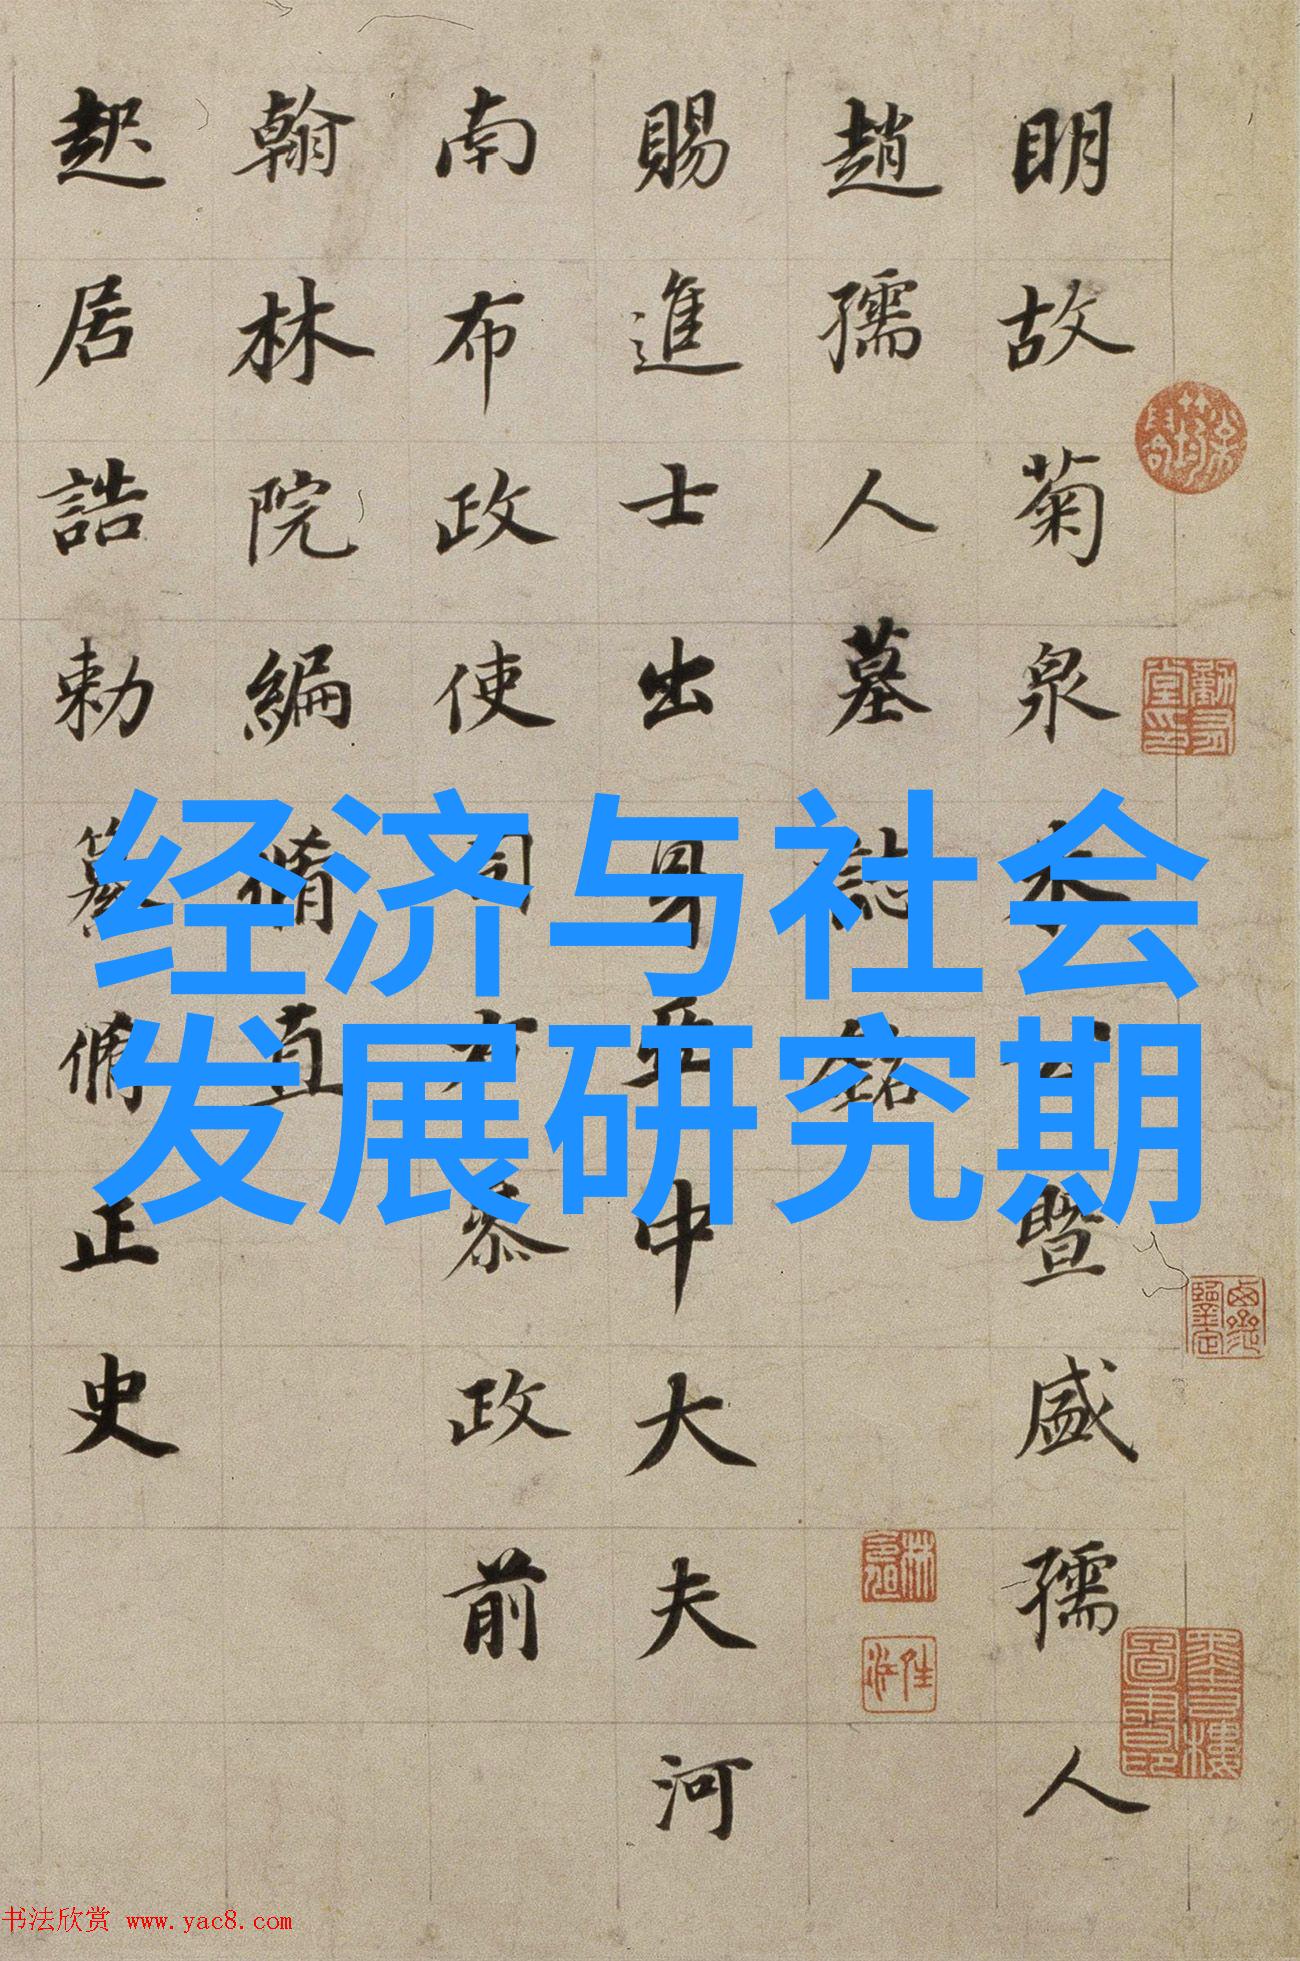 明故菊泉
暨盛孺人
趙孺人墓誌銘
賜進士出身亞中大夫河
南布政使司
叅政前
翰林院編脩直
起居誥勅纂脩正史
经济与社会
发展研究期
书法欣赏 www.yac8.com